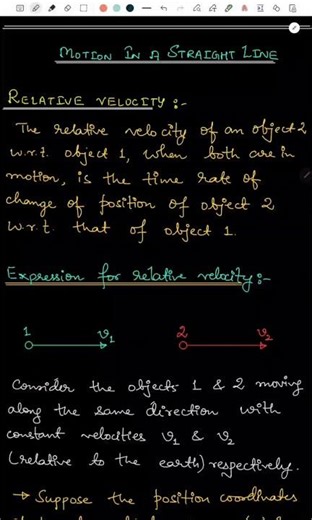 MOTION IN A STRAIGHT LINE
RELATIVE VELOCITY :-
The relative velocity of an object 2
w.r.t. object 1, when both are in
motion, is the time rate of
change of position of object 2
w.r.t. that of object 1.
Expression for relative velocity:-
1 v₁ 2 v₂
Consider the objects 1 & 2 moving
along the same direction with
constant velocities v₁ & v₂
(relative to the earth) respectively.
→ Suppose the position coordinates